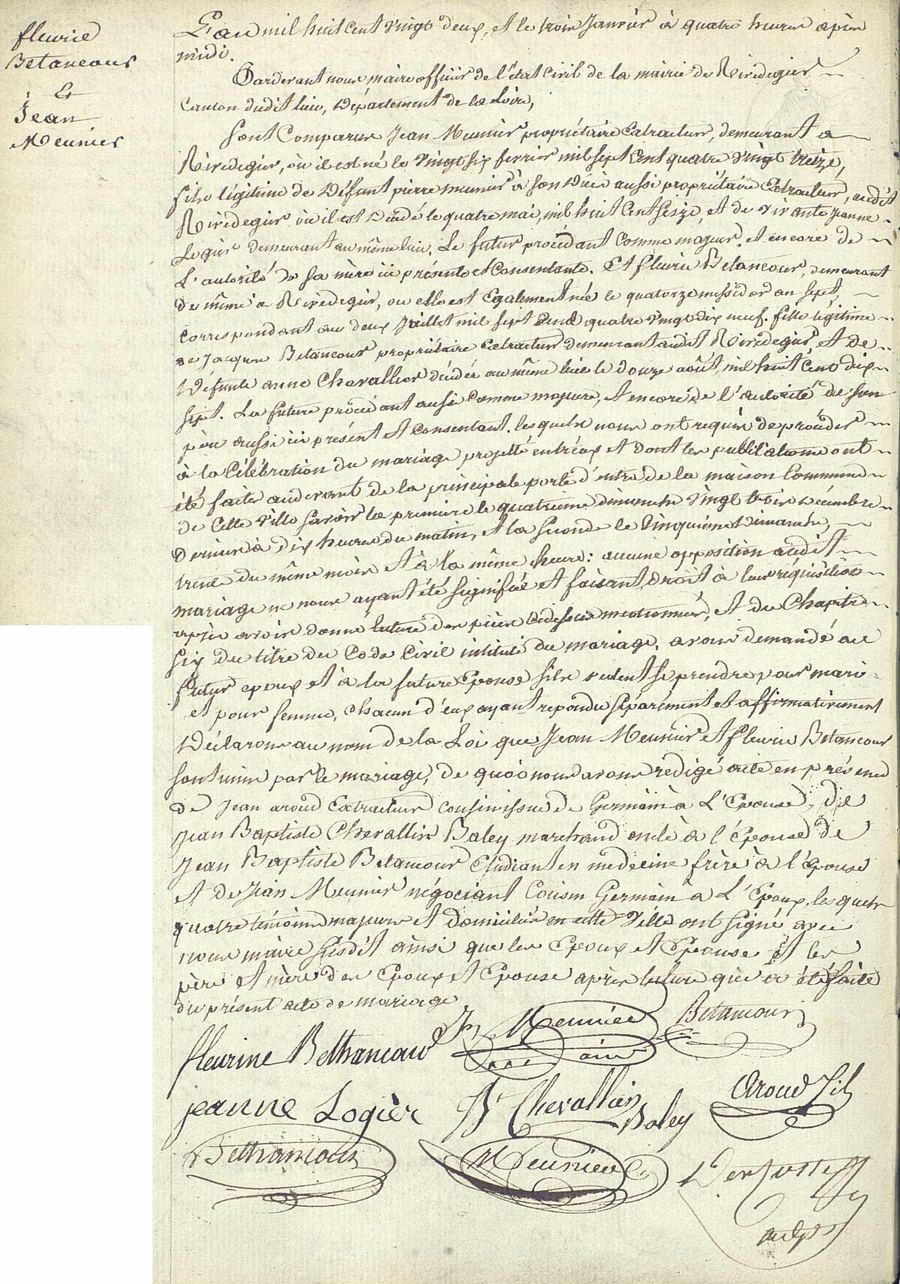 fleurie
Betancour
&
Jean
Meunier
L'an mil huit cent vingt deux, et le trois Janvier à quatre heures après
midi.
Pardevant nous maire officier de l'état civil de la mairie de Rivedegier
Canton dudit lieu, Département de la Loire,
Sont Comparus Jean Meunier propriétaire Extracteur, demeurant à
Rivedegier, où il est né le vingt six fevrier mil sept cent quatre vingt treize,
fils légitime de Défunt pierre munier à son Décès aussi propriétaire Extracteur, audit
Rivedegier où il est Décédé le quatre mai mil huit Cent seize, et de vivante Jeanne
Logier demeurant au même lieu. Le futur procédant comme majeur, et encore de
L'autorité de sa mère ici présente et Consentante. Et fleurie Betancour, demeurant
de même à Rivedegier, ou elle est Egalement née le quatorze messidor an sept,
correspondant au deux Juillet mil sept Cent quatre vingt dix neuf. fille légitime
de Jacques Betancour propriétaire Extracteur demeurant audit Rivedegier et de
Défunte anne Chevallier décédée au même lieu le Douze août mil huit Cent dix
sept. La future procédant aussi comme majeure, et encore de l'autorité de son
père aussi ici présent et Consentant. lesquels nous ont requis de procéder
à la Célébration du mariage projetté entr'eux et dont les publications ont
été faites audevant de la principale porte d'entrée de la maison Commune
de Cette ville savoir la première le quatrième dimanche vingt trois decembre
dernier à dix heures du matin, et la seconde le Cinquième dimanche,
trente du même mois et à la même heure: aucune opposition audit
mariage ne nous ayant été signifiée et faisant droit à leur réquisition
après avoir donné lecture des pièces cidessus mentionnées, et du Chapitre
six du titre du Code Civil intitulé du mariage, avons demandé au
futur epoux et à la future Epouse s'ils veulent se prendre pour mari
et pour femme, chacun d'eux ayant repondu séparément et affirmativement
Déclarons au nom de la Loi que Jean Meunier et fleurie Betancour
sont unis par le mariage, de quoi nous avons rédigé acte en présence
de Jean aroud Extracteur cousin issu de Germain à L'Epouse, de
Jean Baptiste Chevallier Baley marchand oncle à l'Epouse de
Jean Baptiste Betancour Etudiant en medecine frère à l'Epouse
et de Jean Meunier négociant Cousin Germain à L'Epoux, lesquels
quatre témoins majeurs et domiciliés en cette ville ont signé avec
nous maire susdit ainsi que les Epoux et Epouse et les
père et mère des Epoux et Epouse après lecture que a été faite
du présent acte de mariage
fleurine Bethancour Jn Meunier Betancour
ainé
jeanne Logier Bte Chevallier Baley Aroud fils
Bethancour Meunier